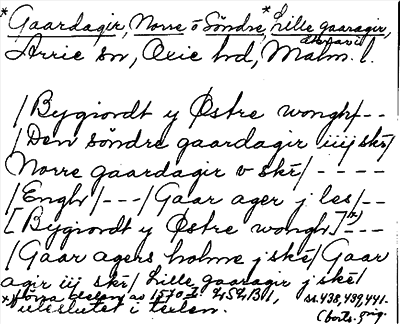 *Gaardagir, Norre o Söndre, *Lille gaaragir,
Arrie sn, Oxie hd, Malm. l.
/Bygiordt y Østre wongh/--
/Den söndre gaardagir iiij skr/
Norre gaardagir v skr/----
/Engh/---/Gaar ager j les/--
[Bygiordt y Østre wongh]*)
/Gaar agers holme j skr/Gaar
agir iij skr/Lille gaaragir j skr/
1570 ss. 438, 439, 441.
uteslutet i texten. (forts. gng.